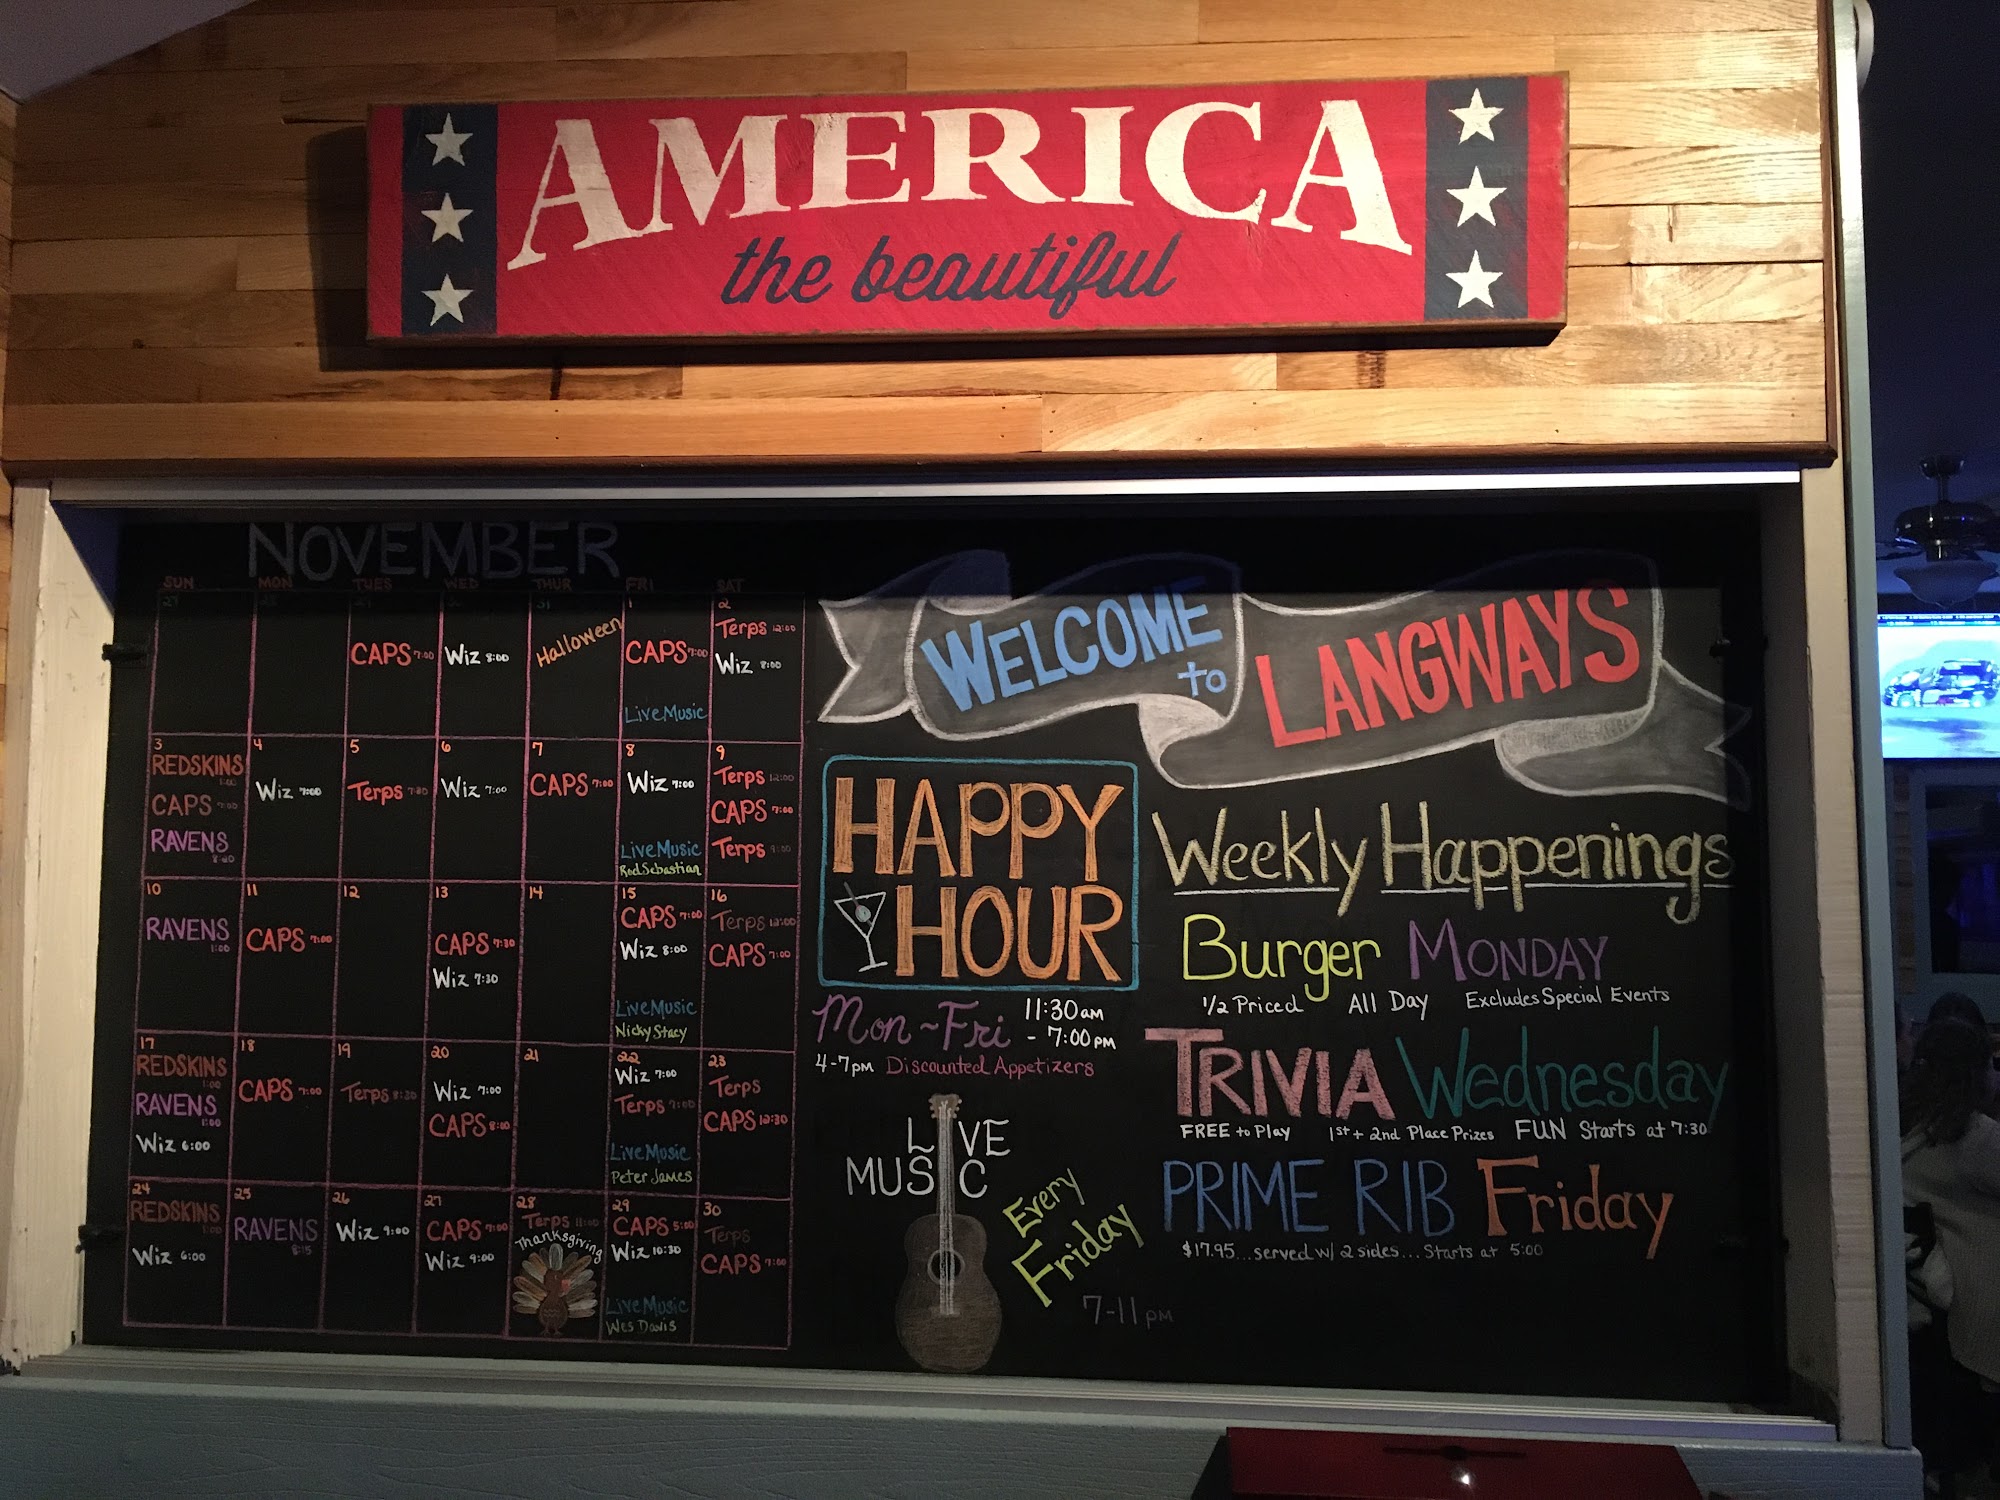 AMERICA
the beautiful
NOVEMBER
SUN MON TUES WED THUR FRI SAT
27 31 1 2
CAPS 7:00
Wiz 8:00
Halloween
CAPS 7:00
Live Music
Terps 12:00
Wiz 8:00
3 4 5 6 7 8 9
REDSKINS 1:00
CAPS 7:00
RAVENS 8:20
Wiz 7:00
Terps
Wiz 7:00
CAPS 7:00
Wiz 7:00
Live Music
Rod Sebastian
Terps 12:00
CAPS 7:00
Terps 9:00
10 11 12 13 14 15 16
RAVENS 1:00
CAPS 7:00
CAPS 7:30
Wiz 7:30
CAPS 7:00
Wiz 8:00
Live Music
Nicky Stacy
Terps 12:00
CAPS 7:00
17 18 19 20 21 22 23
REDSKINS 1:00
RAVENS 1:00
Wiz 6:00
CAPS 7:00
Terps 8:30
Wiz 7:00
CAPS 8:00
Wiz 7:00
Terps 7:00
Live Music
Peter James
Terps
CAPS 12:30
24 25 26 27 28 29 30
REDSKINS 1:00
Wiz 6:00
RAVENS 8:15
Wiz 9:00
CAPS 7:00
Wiz 9:00
Terps 11:00
Thanksgiving
CAPS 5:00
Wiz 10:30
Live Music
Wes Davis
Terps
CAPS 7:00
WELCOME
to
LANGWAYS
HAPPY
HOUR
Mon~Fri 11:30am
- 7:00pm
4-7pm Discounted Appetizers
LIVE
MUSIC
Every
Friday
7-11pm
Weekly Happenings
Burger MONDAY
1/2 Priced All Day Excludes Special Events
TRIVIA Wednesday
FREE to Play 1st + 2nd Place Prizes FUN Starts at 7:30
PRIME RIB Friday
$17.95...served w/ 2 sides...Starts at 5:00